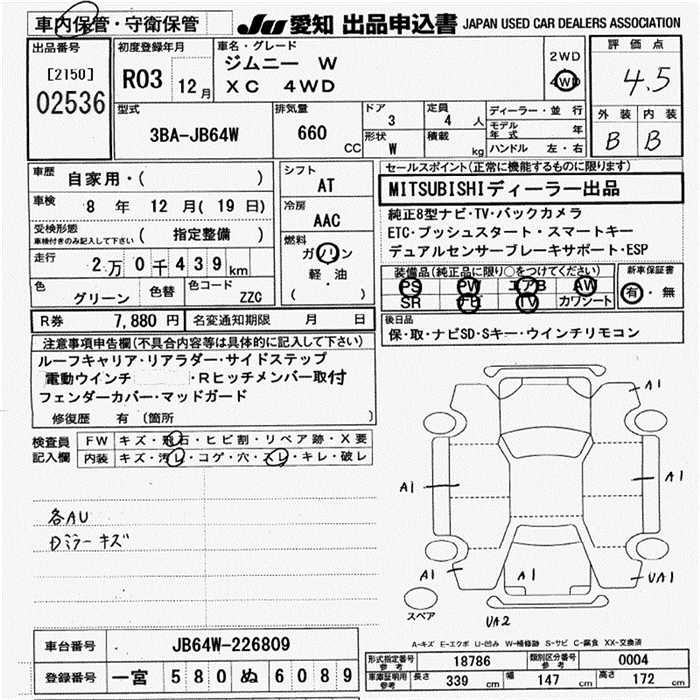 車内保管・守衛保管
JU 愛知 出品申込書 JAPAN USED CAR DEALERS ASSOCIATION
出品番号
[2150]
02536
初度登録年月
R03 12月
車名・グレード
ジムニー W
XC 4WD
2WD
4WD
評価点
4.5
外装 内装
B B
型式
3BA-JB64W
排気量
660 CC
ドア
3
形状
W
定員
4 人
積載
kg
ディーラー・並行
モデル年式 年
ハンドル 左・右
車歴
自家用・( )
車検
8 年 12 月( 19 日)
受検形態
車検付きのみ記入して下さい
( 指定整備 )
走行
2万0千439km
色
グリーン
色替
色コード
ZZC
シフト
AT
冷房
AAC
燃料
ガソリン
軽・油
( )
セールスポイント(正常に機能するものに限ります)
MITSUBISHIディーラー出品
純正8型ナビ・TV・バックカメラ
ETC・プッシュスタート・スマートキー
デュアルセンサーブレーキサポート・ESP
装備品(純正品に限り○をつけてください)
PS PW エアB AW
SR ナビ TV カワシート
新車保証書
有・無
R券 7,880 円 名変通知期限 月 日
後日品
保・取・ナビSD・Sキー・ウインチリモコン
注意事項申告欄(不具合内容等は具体的に記入して下さい)
ルーフキャリア・リアラダー・サイドステップ
電動ウインチ ・Rヒッチメンバー取付
フェンダーカバー・マッドガード
修復歴 有 (箇所 )
検査員
記入欄
FW キズ・飛石・ヒビ割・リペア跡・X要
内装 キズ・汚レ・コゲ・穴・スレ・キレ・破レ
各AU
Dミラーキズ
A1
A1
A1
A1
A1
UA1
UA2
スペア
A-キズ E-エクボ U-凹み W-補修跡 S-サビ C-腐食 XX-交換済
車台番号 JB64W-226809
登録番号 一宮 580 ぬ 6089
形式指定番号 参考 18786 類別区分番号 参考 0004
車庫証明用 参考 長さ 339 cm 幅 147 cm 高さ 172 cm